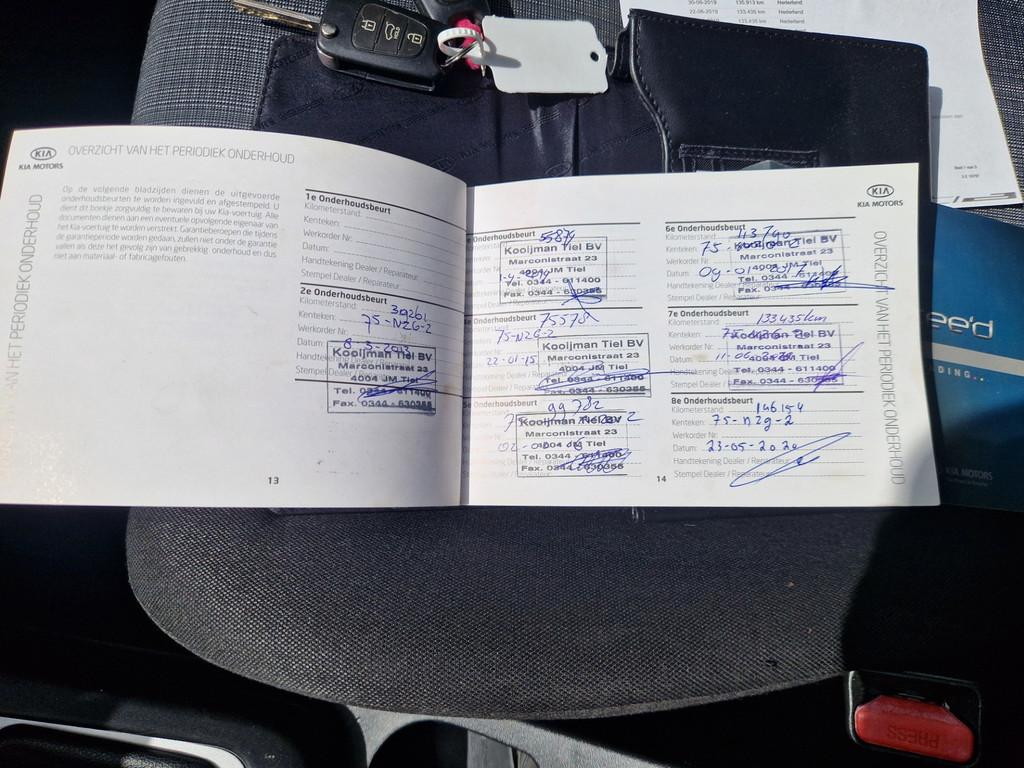 30-06-2019 135.913 km Nederland
22-06-2019 133.435 km Nederland
133.435 km Nederland
KIA
KIA MOTORS
OVERZICHT VAN HET PERIODIEK ONDERHOUD
OVERZICHT VAN HET PERIODIEK ONDERHOUD
Op de volgende bladzijden dienen de uitgevoerde
onderhoudsbeurten te worden ingevuld en afgestempeld. U
dient dit boekje zorgvuldig te bewaren bij uw Kia-voertuig. Alle
documenten dienen aan een eventuele opvolgende eigenaar van
het Kia-voertuig te worden verstrekt. Garantieberoepen die tijdens
de garantieperiode worden gedaan, zullen niet onder de garantie
vallen als deze het gevolg zijn van gebrekkig onderhoud en dus
niet aan materiaal- of fabricagefouten.
1e Onderhoudsbeurt
Kilometerstand:
Kenteken:
Werkorder Nr:
Datum:
Handtekening Dealer / Reparateur:
Stempel Dealer / Reparateur:
2e Onderhoudsbeurt
Kilometerstand: 39261
Kenteken: 75-NZG-2
Werkorder Nr:
Datum: 8-3-2013
Handtekening Dealer / Reparateur
Stempel Dealer / Reparateur
Kooijman Tiel BV
Marconistraat 23
4004 JM Tiel
Tel. 0344 - 611400
Fax. 0344 - 630355
13
e Onderhoudsbeurt
55879
Kooijman Tiel BV
Marconistraat 23
4004 JM Tiel
Tel. 0344 - 611400
Fax. 0344 - 630355
e Onderhoudsbeurt
75578
75-NZG-2
22-01-15
Kooijman Tiel BV
Marconistraat 23
4004 JM Tiel
Tel. 0344 - 611400
Fax. 0344 - 630355
e Onderhoudsbeurt
99782
Kooijman Tiel BV
Marconistraat 23
4004 JM Tiel
Tel. 0344 - 611400
Fax. 0344 - 630355
14
KIA
KIA MOTORS
OVERZICHT VAN HET PERIODIEK ONDERHOUD
6e Onderhoudsbeurt
Kilometerstand: 113740
Kenteken: 75-
Werkorder Nr:
Datum: 09-01-2017
Handtekening Dealer / Reparateur
Stempel Dealer / Reparateur
Kooijman Tiel BV
Marconistraat 23
4004 JM Tiel
Tel. 0344 - 611400
Fax. 0344 - 630355
7e Onderhoudsbeurt
Kilometerstand: 133435km
Kenteken:
Werkorder Nr:
Datum: 11-06
Handtekening Dealer
Stempel Dealer /
Kooijman Tiel BV
Marconistraat 23
4004 JM Tiel
Tel. 0344 - 611400
Fax. 0344 - 630355
8e Onderhoudsbeurt
Kilometerstand: 146154
Kenteken: 75-nzg-2
Werkorder Nr:
Datum: 23-05-2020
Handtekening Dealer / Reparateur:
Stempel Dealer / Reparateur:
ee'd
ADING..
KIA MOTORS
PRESS